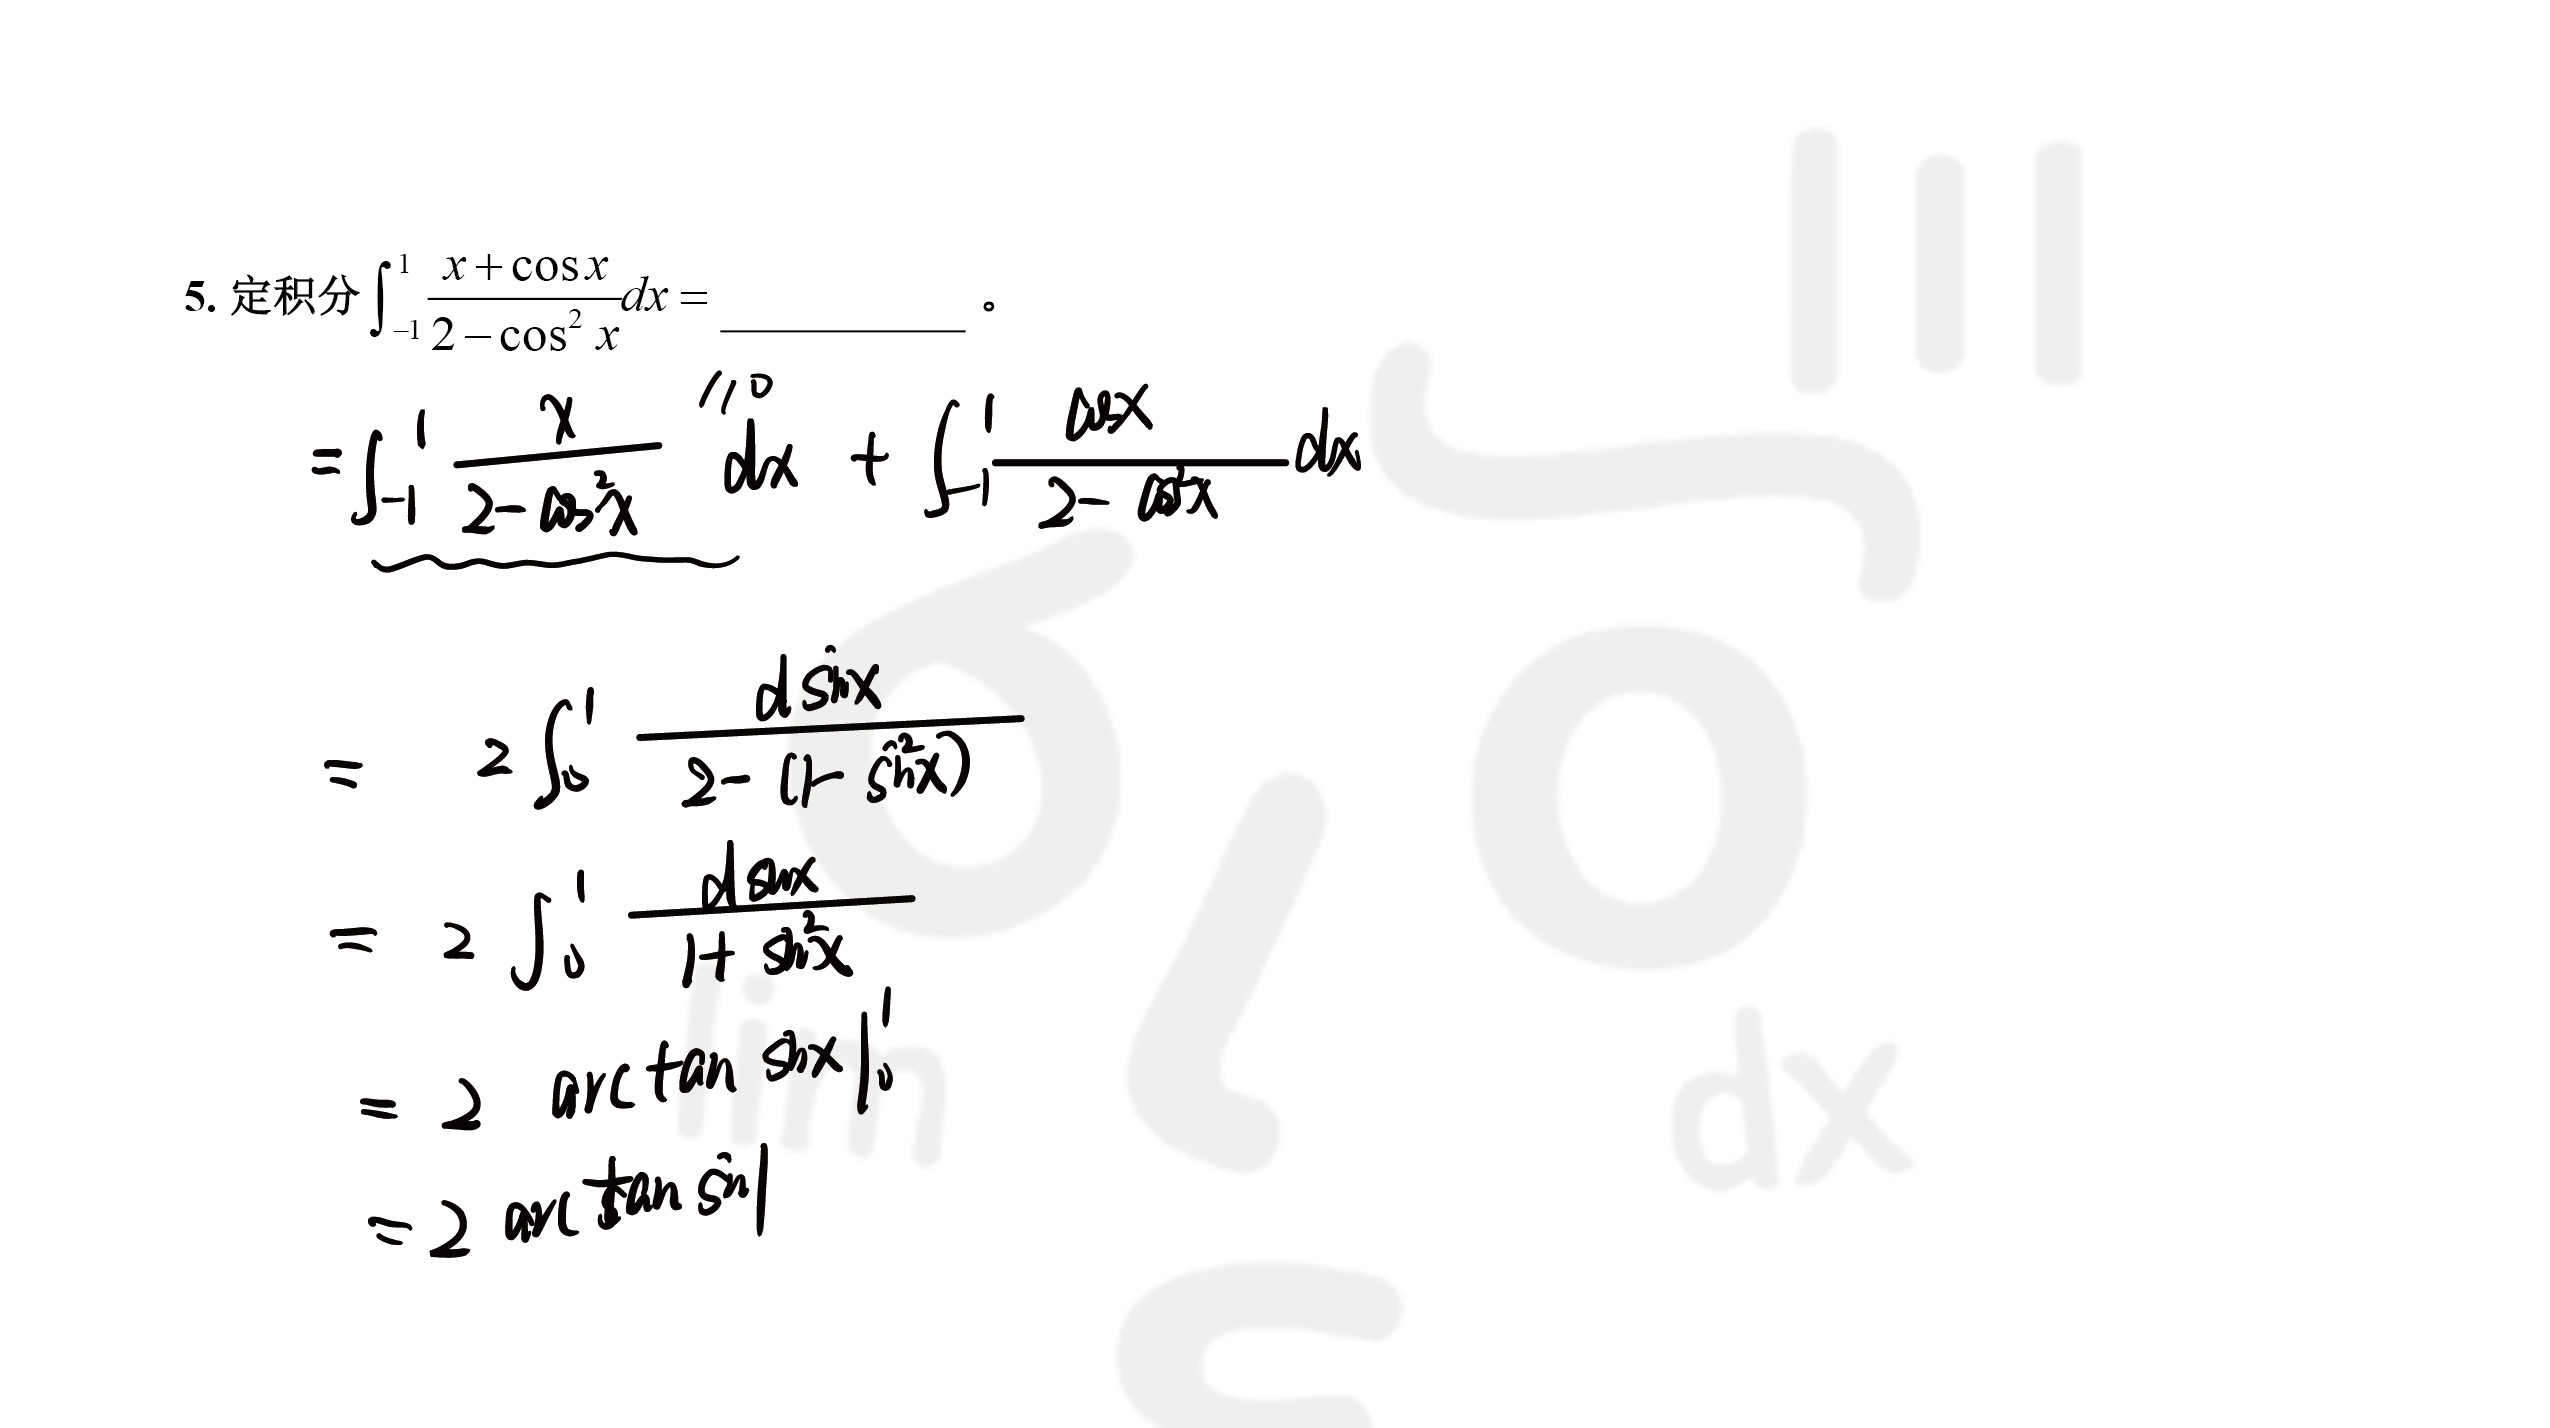 5. 定积分 ∫_{-1}^{1} (x+cos x)/(2−cos² x) dx = ________ 。
= ∫_{-1}^{1} x/(2−cos²x) dx + ∫_{-1}^{1} cosx/(2−cos²x) dx
// 0
= 2 ∫_0^1 d sinx/(2−(1−sin²x))
= 2 ∫_0^1 d sinx/(1+ sin²x)
= 2 arctan sinx |_0^1
= 2 arctan sin1
lim
dx